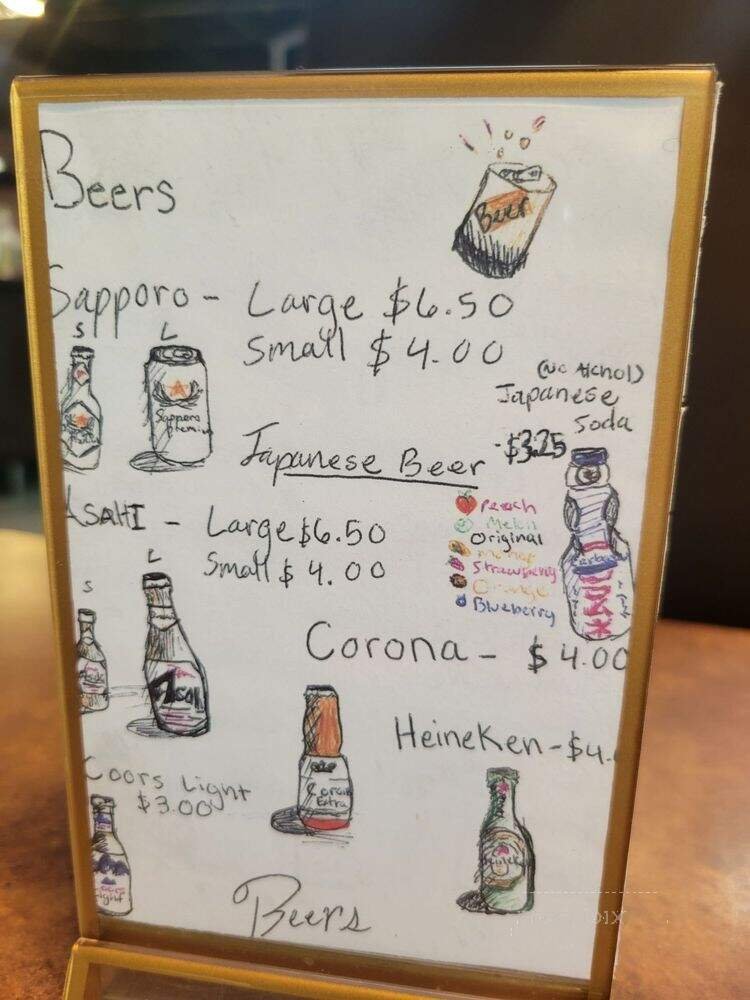 Beers
Beer
Sapporo - Large $6.50
Small $4.00
S L
Sapporo
Premium
(No Alchol)
Japanese
Soda
- $3.25
Japanese Beer
Peach
Melon
Original
Mango
Strawberry
Orange
Blueberry
ASAHI - Large $6.50
Small $4.00
S L
Asahi
Corona - $4.00
Corona
Extra
Heineken - $4.
Coors Light
$3.00
Coors
Light
Beers